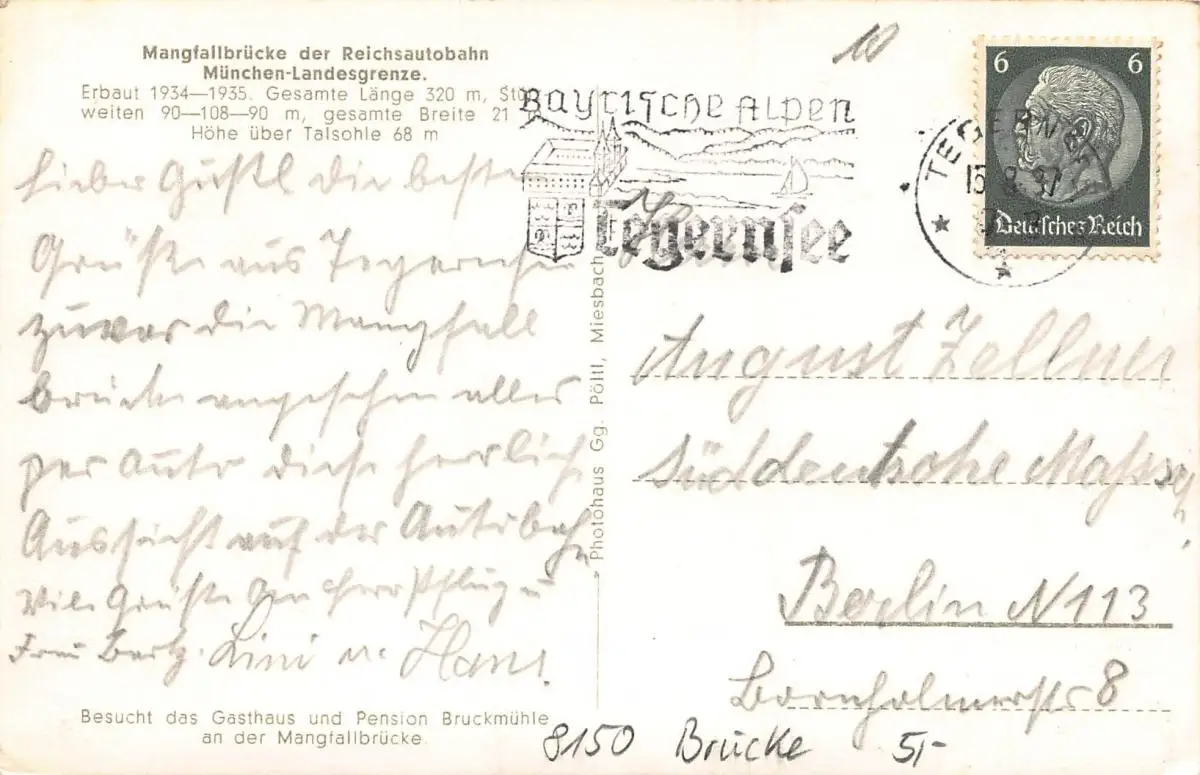 Mangfallbrücke der Reichsautobahn
München-Landesgrenze.
Erbaut 1934—1935. Gesamte Länge 320 m,
weiten 90—108—90 m, gesamte Breite 21
Höhe über Talsohle 68 m
Lieber Gustl die besten
Grüße aus Tegernsee
zuvor die Mangfall
brücke angesehen alles
per Auto die herrliche
Aussicht auf der Autobahn
Viele Grüße an Herr Pflug u
Frau Lini u. Hans.
Besucht das Gasthaus und Pension Bruckmühle
an der Mangfallbrücke.
Photohaus Gg. Pöltl, Miesbach
10
Bayrische Alpen
Tegernsee
TEGERNSEE
15.8.37
6 6
Deutsches Reich
August Zellner
Süddeutsche
Berlin N 113
Bornholmerstr 8
8150 Brücke 5,-